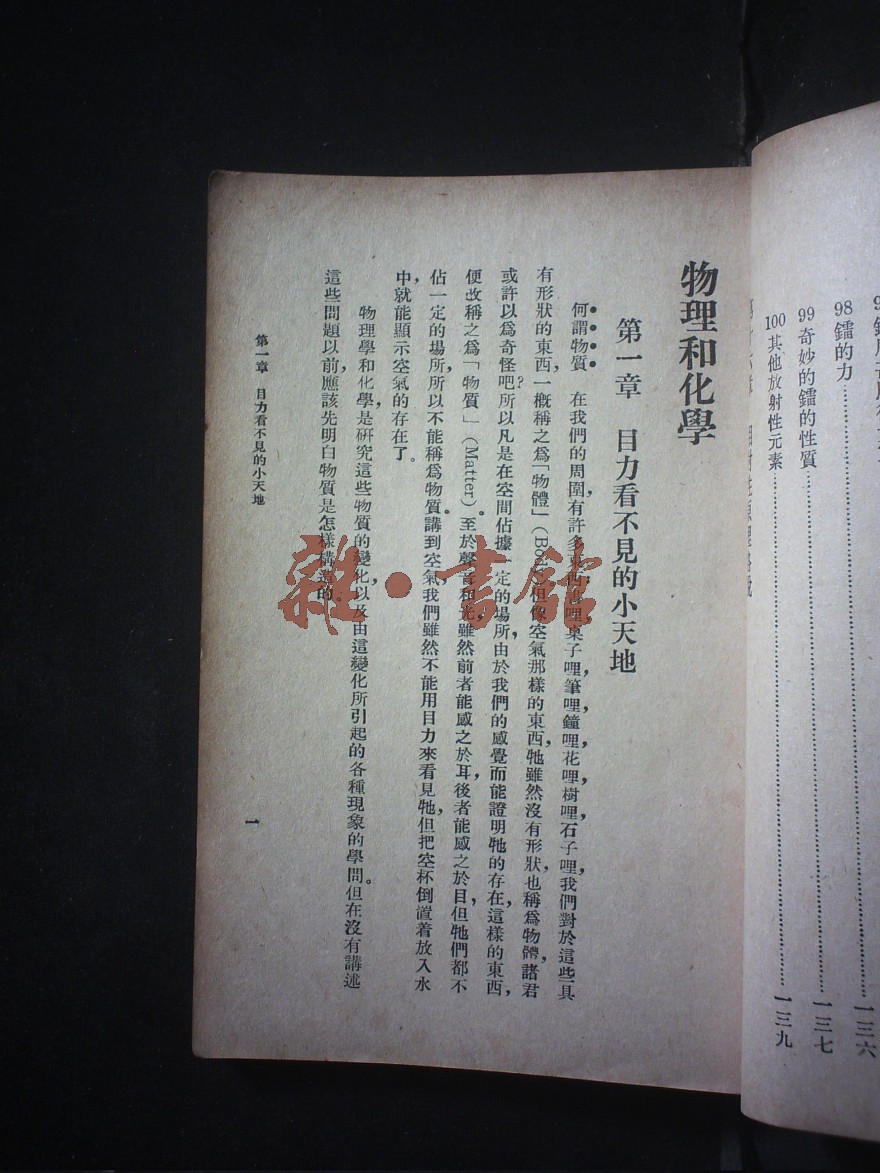 98鐳的力……………一三六
99奇妙的鐳的性質……………一三七
100其他放射性元素……………一三九
物理和化學
第一章 目力看不見的小天地
何謂物質 在我們的周圍,有許多東西,哩,桌子哩,筆哩,鐘哩,花哩,樹哩,石子哩,我們對於這些具
有形狀的東西,一槪稱之爲「物體」(Body)但像空氣那樣的東西,牠雖然沒有形狀,也稱爲物體,諸君
或許以爲奇怪吧?所以凡是在空間佔據一定的場所,由於我們的感覺而能證明牠的存在,這樣的東西,
便改稱之爲「物質」(Matter)。至於聲音和光,雖然前者能感之於耳,後者能感之於目,但牠們都不
佔一定的場所,所以不能稱爲物質。講到空氣,我們雖然不能用目力來看見牠,但把空杯倒置着放入水
中,就能顯示空氣的存在了。
物理學和化學,是硏究這些物質的變化,以及由這變化所引起的各種現象的學問。但在沒有講述
這些問題以前,應該先明白物質是怎樣構造的。
第一章 目力看不見的小天地
一
雜·書館